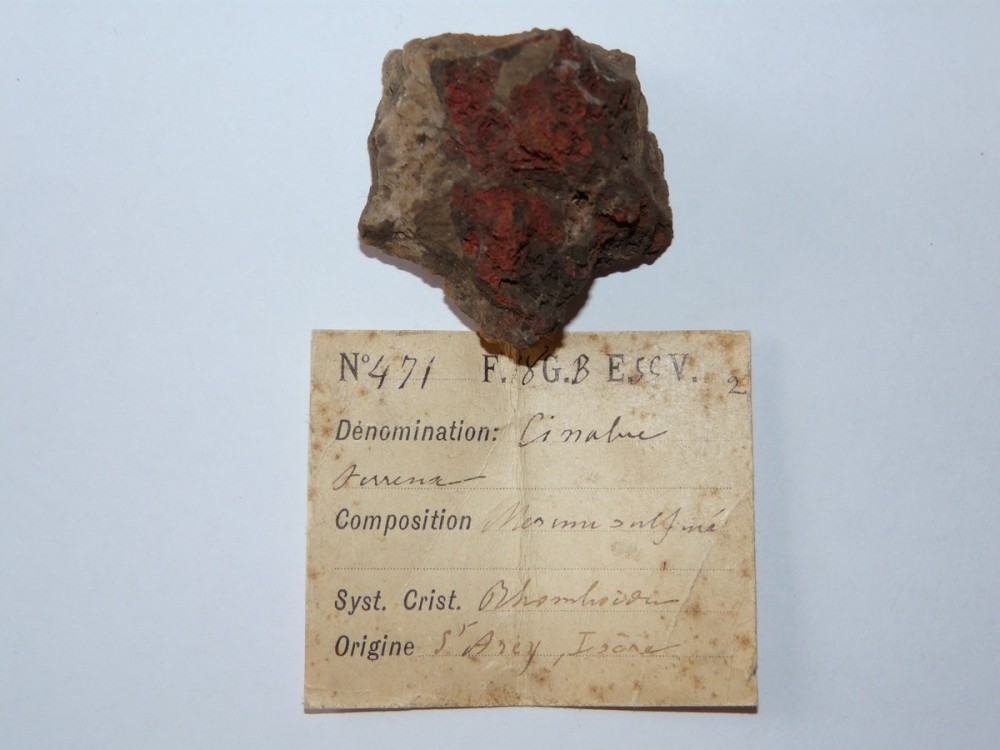 N° 471 F. 8 G.B E.SS V. 2
Dénomination: Cinabre
terreux
Composition Mercure sulfuré
Syst. Crist. Rhomboïdal
Origine St Arey, Isère